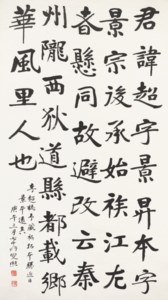 君諱超字景昇本字
景宗後承始族江左
者懸同故避改云秦
州隴西狄道縣都鄉
華風里人也